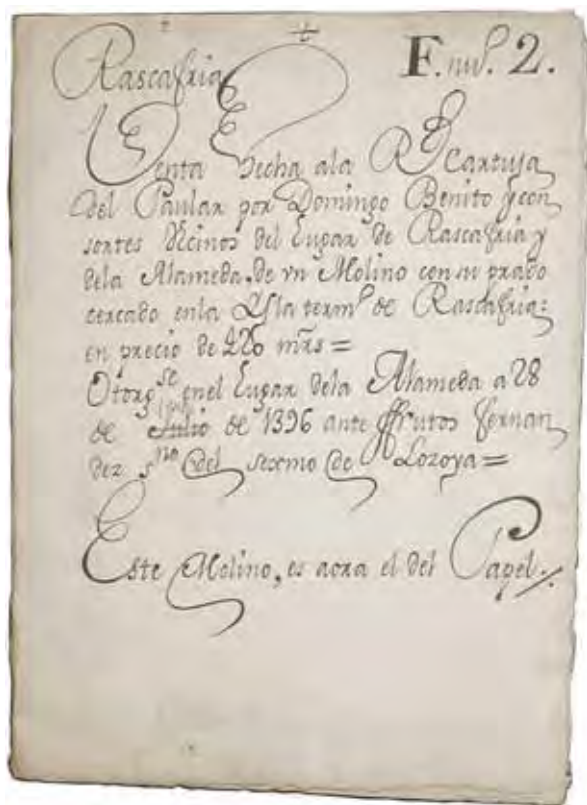 F. nu.º 2.
Rascafria
Venta hecha ala Rˡ Cartuja
del Paular por Domingo Benito y con
sortes Vecinos del Lugar de Rascafria y
dela Alameda. de vn Molino con su prado
cercado enla Ysla term.º de Rascafria:
en precio de 220 mrs =
Otorg.se enel Lugar dela Alameda a 28
de Julio de 1396 ante ffrutos fernan
dez s.no del sexmo de Lozoya =
Este Molino, es aora el del Papel.